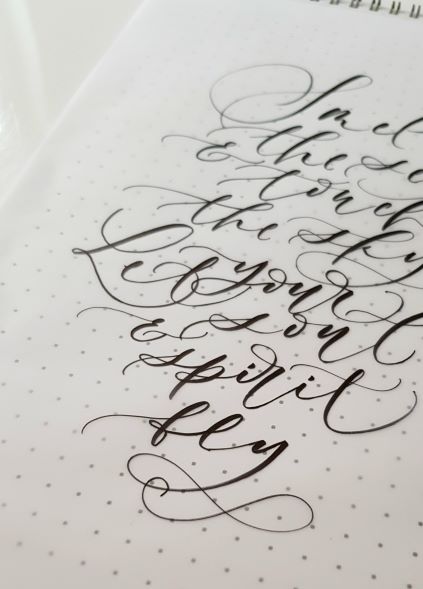 Smel
& the se
touch
the sky
Let your
& soul
spirit
fly